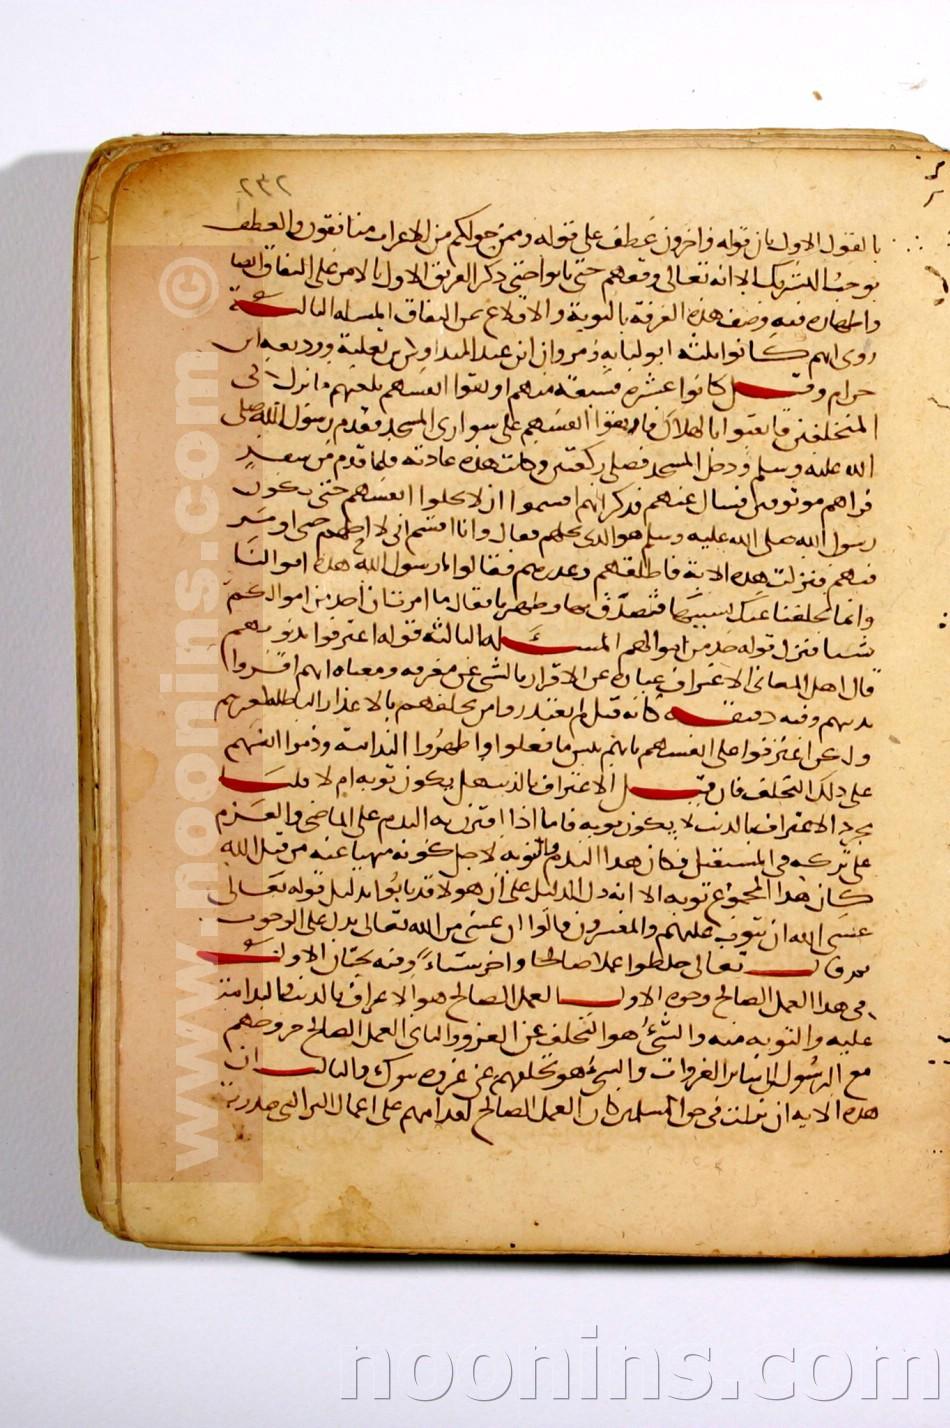 ٢٣٢
بالقول الاول بان قوله واخرون عطف على قوله وممن حولكم من الاعراب منافقون والعطف
يوجب التشريك الا انه تعالى وفقهم حتى تابوا حتى ذكر الفريق الاول بالامر على النفاق
واظهاره فيه وصف هذه الفرقة بالتوبة والاقلاع عن النفاق المسله الثالثة
روى انهم كانوا ثلثه ابو لبابه مروان ابن عبد المنذر واوس بن ثعلبة ووديعه ابن
حرام وقيل كانوا عشره فسبعه منهم اوثقوا انفسهم بلغهم ما نزل في
المتخلفين فايقنوا بالهلاك فاوثقوا انفسهم على سوارى المسجد فقدم رسول الله صلى
الله عليه وسلم ودخل المسجد فصلى ركعتين وكانت هذه عادته فلما قدم من سفره
فراهم موثوقين فسال عنهم فذكر انهم اقسموا ان لا يحلوا انفسهم حتى يكون
رسول الله صلى الله عليه وسلم هو الذى يحلهم فقال وانا اقسم انى لا احلهم حتى اومر
فيهم فنزلت هذه الاية فاطلقهم وعذرهم فقالوا يا رسول الله هذه اموالنا
وانما تخلفنا عنك بسببها فتصدق بها وطهرنا فقال ما امرت ان اخذ من اموالكم
شيا فنزل قوله خذ من اموالهم المسئله الثالثه قوله اعترفوا بذنوبهم
قال اهل المعانى الاعتراف عباره عن الاقرار بالشى عن معرفه ومعناه انهم اقروا
بذنبهم وفيه دقيقه كانه قيل لم يعتذروا من تخلفهم بالاعذار الباطله كغيرهم
ولكن اعترفوا على انفسهم بانهم بئس ما فعلوا واظهروا الندامة وذموا انفسهم
على ذلك التخلف فان قيل الاعتراف بالذنب هل يكون توبه ام لا قلنا
مجرد الاعتراف بالذنب لا يكون توبه فاما اذا اقترن به الندم على الماضى والعزم
على تركه فى المستقبل فكان هذا الندم والتوبه لاجل كونه منهيا عنه من قبل الله
كان هذا المجموع توبه الا انه دل الدليل على ان هولا قد تابوا بدليل قوله تعالى
عسى الله ان يتوب عليهم والمفسرون قالوا ان عسى من الله تعالى يدل على الوجوب
ثم قال تعالى خلطوا عملا صالحا واخر سيئاً وفيه بحثان الاول
فى هذا العمل الصالح وجوه الاول العمل الصالح هو الاعتراف بالذنب والندامة
عليه والتوبه منه والسئ هو التخلف عن الغزو والثانى العمل الصالح خروجهم
مع الرسول الى سائر الغزوات والسئ هو تخلفهم عن غزوه تبوك والثالث ان
هذه الايه ان نزلت فى حق المسلمين كان العمل الصالح اقدامهم على اعمال البر التى صدرت
www.noonins.com ©
noonins.com